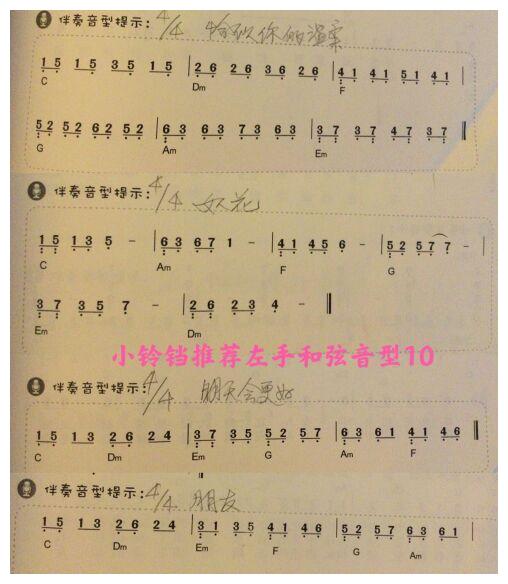 伴奏音型提示: 4/4 恰似你的温柔
1 5 1 5 3 5 1 5 | 2 6 2 6 3 6 2 6 | 4 1 4 1 5 1 4 1 |
C Dm F
5 2 5 2 6 2 5 2 | 6 3 6 3 7 3 6 3 | 3 7 3 7 4 7 3 7 ‖
G Am Em
伴奏音型提示: 4/4 女人花
1 5 1 3 5 - | 6 3 6 7 1 - | 4 1 4 5 6 - | 5 2 5 7 7 - |
C Am F G
3 7 3 5 7 - | 2 6 2 3 4 - ‖
Em Dm
小铃铛推荐左手和弦音型10
伴奏音型提示: 4/4 明天会更好
1 5 1 3 2 6 2 4 | 3 7 3 5 5 2 5 7 | 6 3 6 1 4 1 4 6 ‖
C Dm Em G Am F
伴奏音型提示: 4/4 朋友
1 5 1 3 2 6 2 4 | 3 1 3 5 4 1 4 6 | 5 2 5 7 6 3 6 1 |
C Dm Em F G Am